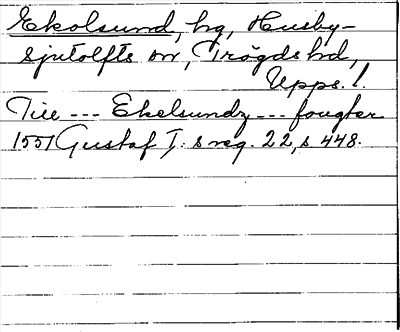 Ekolsund, hg, Husby-
sjutolfts sn, Trögds hd,
Upps. l.
Till --- Ekelsundz --- fougter
1551 Gustaf I:s reg. 22, s 448.